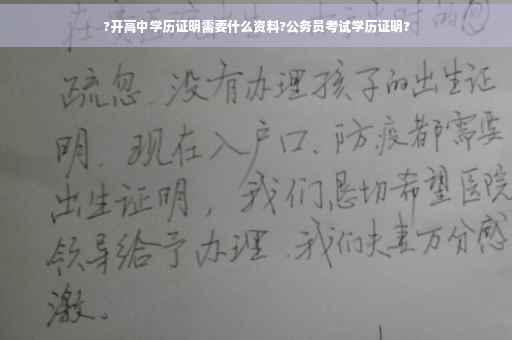 ?开高中学历证明需要什么资料?公务员考试学历证明?
疏忽、没有办理孩子的出生证
明、现在入户口、防疫都需要
出生证明，我们恳切希望医院
领导给予办理、我们夫妻万分感
激。